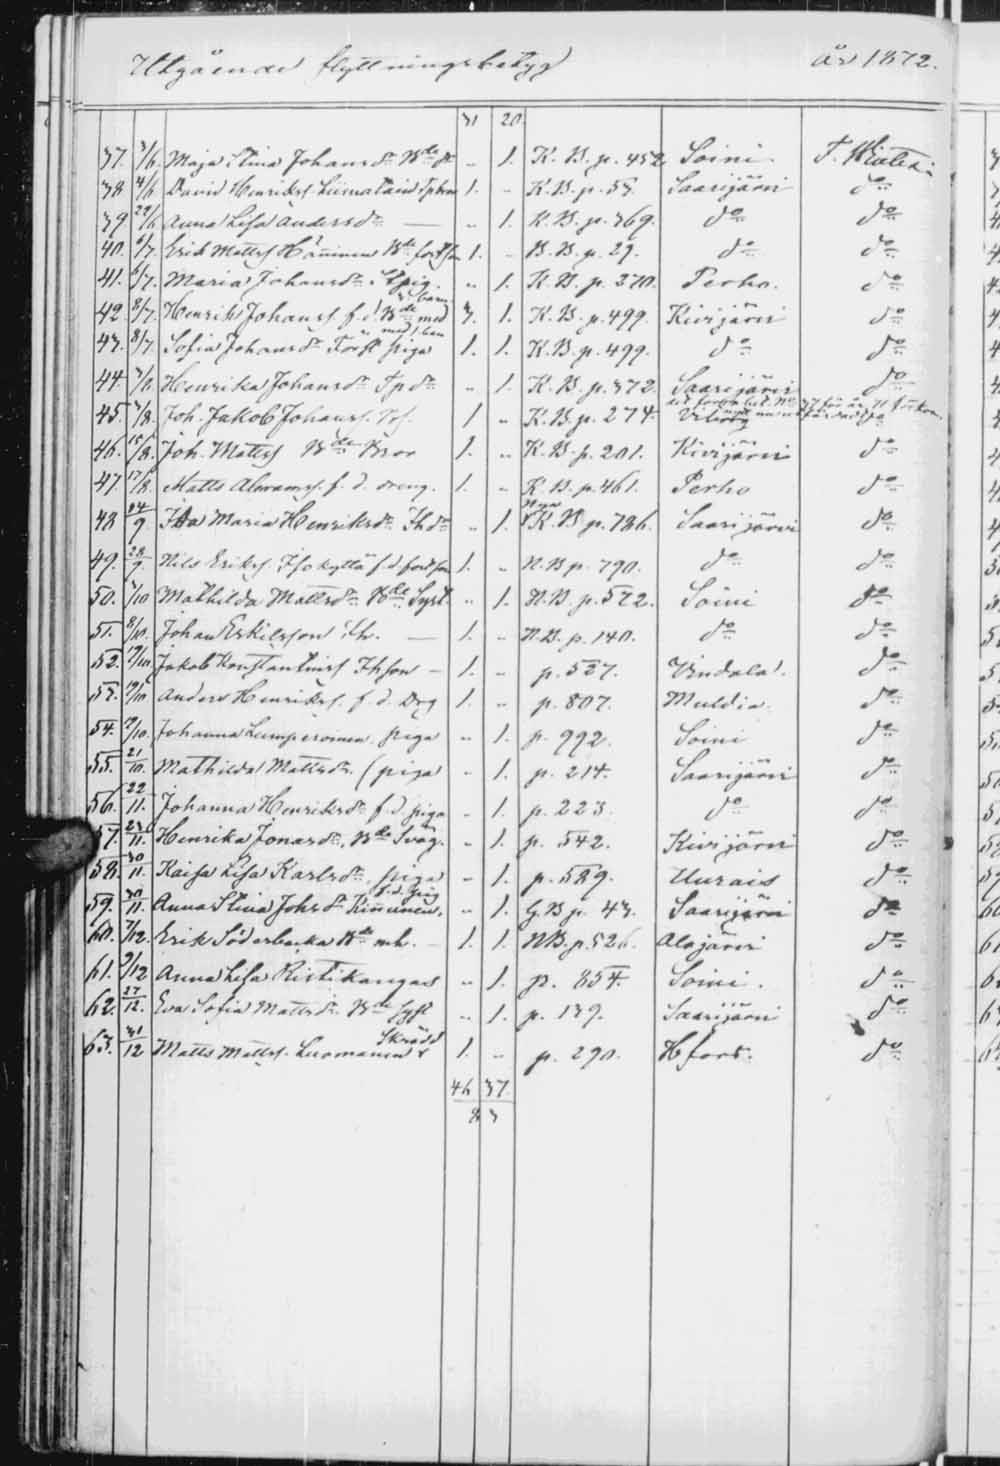 Utgående flyttningsbetyg år 1872.
31 20.
37. 3/6. Maja Stina Johansdr Bde dr „ 1. K. B. p. 452 Soini. F.
38 4/6 David Henrikss. Liimatain 1. „ K. B. p. 57. Saarijärvi do
39 22/6 Anna Lisa Andersdr — „ 1. K. B. p. 369. do do
40. 6/7. Erik Mattss Hänninen Bde 1. „ B. B. p. 29. do do
41. 6/7. Maria Johansdr pig. „ 1. K. B. p. 370. Perho. do
42 8/7. Henrik Johanss. f. d. Bde med barn 3. 1. K. B. p. 499. Kivijärvi do
43. 8/7 Sofia Johansdr piga med 1. 1. K. B. p. 499. do do
44. 3/8 Henrika Johansdr Tpdr „ 1. K. B. p. 372. Saarijärvi do
45. 3/8. Joh. Jakob Johanss. 1 „ K. B. p. 274. Viborg
46. 15/8. Joh. Mattss Bde Bror 1. „ K. B. p. 201. Kivijärvi do
47 17/8. Matts Abramss. f. d. dreng. 1. „ K. B. p. 461. Perho do
48 14/9 Ida Maria Henriksdr „ 1. Nya K. B p. 786. Saarijärvi do
49. 28/9. Nils Erikss. Isokyttä f. d. 1. „ N. B p. 790. do do
50. 3/10 Mathilda Mattsdr Bde Syst. „ 1. N. B. p. 572. Soini do
51. 8/10. Johan Eskilsson — 1. „ N. B. p. 140. do do
52. 19/10. Jakob Konstantinss — 1. „ p. 537. Vindala. do
53. 19/10 Anders Henrikss. f. d. Drg 1. „ p. 807. Multia. do
54. 19/10. Johanna Lumperoinen, piga „ 1. p. 992. Soini do
55. 21/10. Mathilda Mattsdr. (piga „ 1. p. 214. Saarijärvi do
56. 22/11. Johanna Henriksdr f. d. piga „ 1. p. 223. do do
57. 23/11. Henrika Jonasdr, Bde Sväg. „ 1. p. 542. Kivijärvi do
58. 30/11. Kaisa Lisa Karlsdr, piga „ 1. p. 589. Uurais do
59. 30/11. Anna Stina Johsdr Kinnunen, f. d. pig „ 1. G. B p. 43. Saarijärvi do
60. 7/12. Erik Söderbacka Bde m. h. — 1. 1. NB. p. 526. Alajärvi do
61. 9/12 Anna Lisa Ristikangas „ 1. p. 854. Soini. do
62. 27/12. Eva Sofia Mattsdr. Bde Syst „ 1. p. 139. Saarijärvi do
63. 31/12 Matts Mattss. Luomanen Skrädd 1. „ p. 290. Hfors. do
46 37.
83